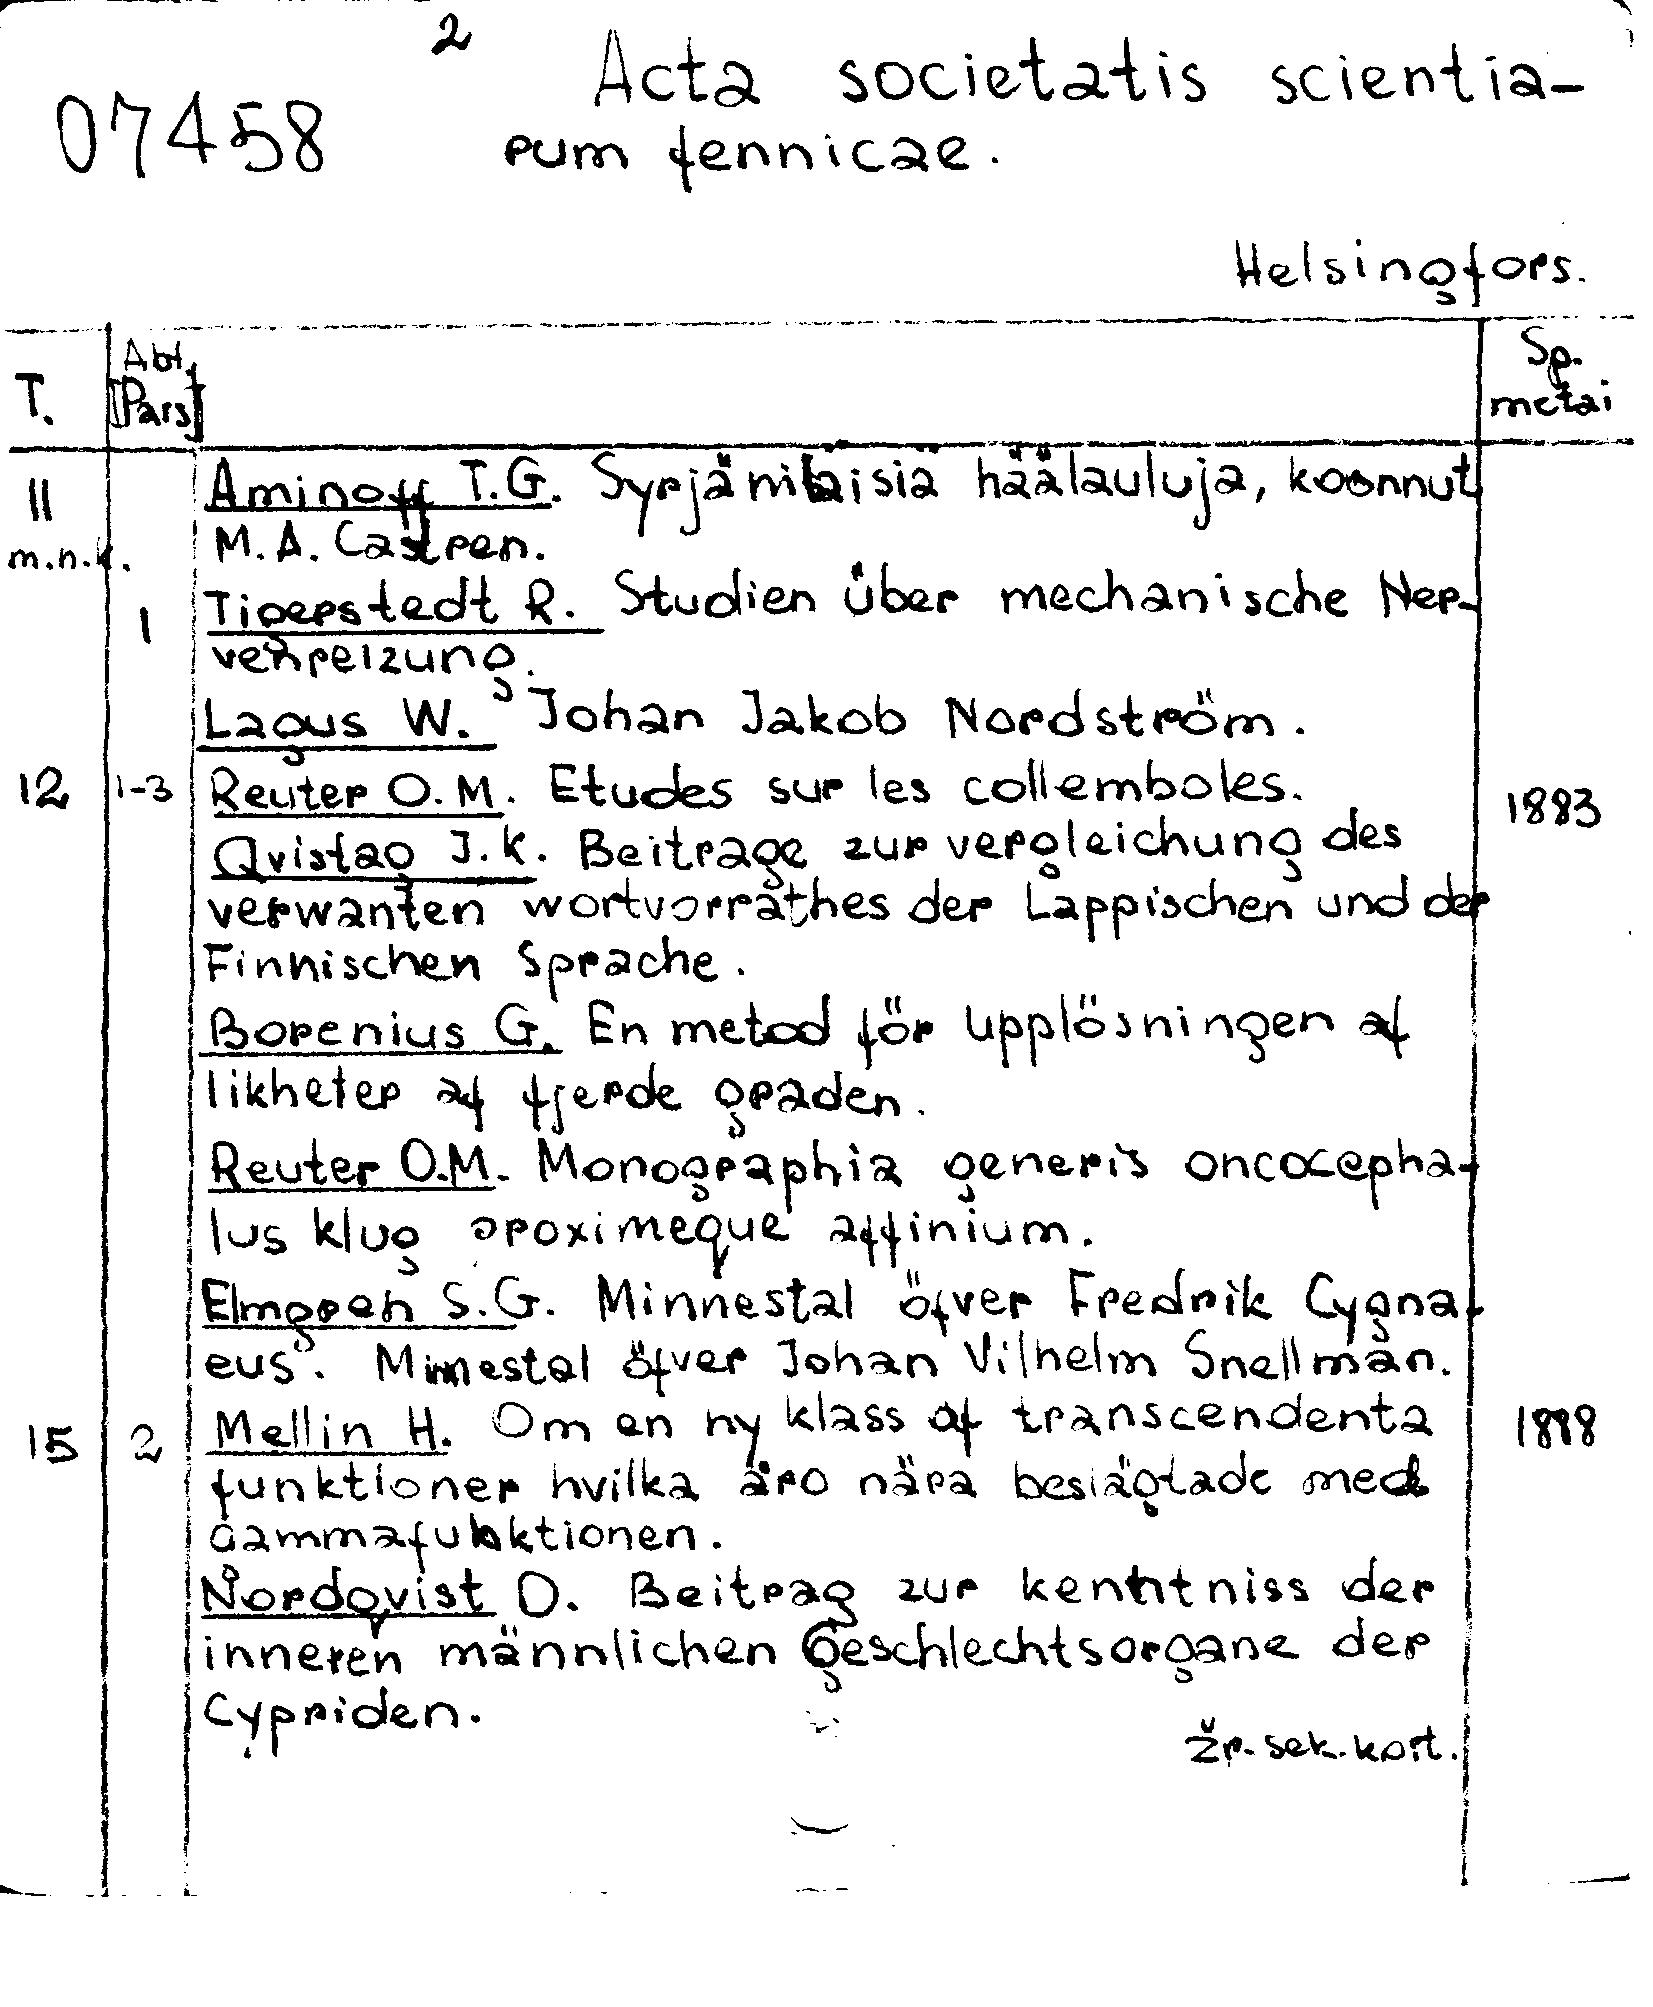 2
07458
Acta societatis scientia-
rum fennicae.
Helsingfors.
T.
Abt.
[Pars]
Sp.
metai
11
m.n.k.
Aminoff T.G. Syrjäniläisiä häälauluja, koonnut
M.A. Castren.
1
Tigerstedt R. Studien über mechanische Ner-
venreizung.
Lagus W. Johan Jakob Nordström.
12 1-3 Reuter O.M. Etudes sur les collemboles. 1883
Qvistag J.K. Beitrage zur vergleichung des
verwanten wortvorrathes der Lappischen und der
Finnischen Sprache.
Borenius G. En metod för upplösningen af
likheter af fjerde graden.
Reuter O.M. Monographia generis oncocepha-
lus klug proximeque affinium.
Elmgren S.G. Minnestal öfver Fredrik Cygna-
eus. Minnestal öfver Johan Vilhelm Snellman.
15 2 Mellin H. Om en ny klass af transcendenta 1888
funktioner hvilka äro nära beslägtade med
Gammafunktionen.
Nordqvist O. Beitrag zur kenntniss der
inneren männlichen Geschlechtsorgane der
Cypriden.
žr. sek. kort.